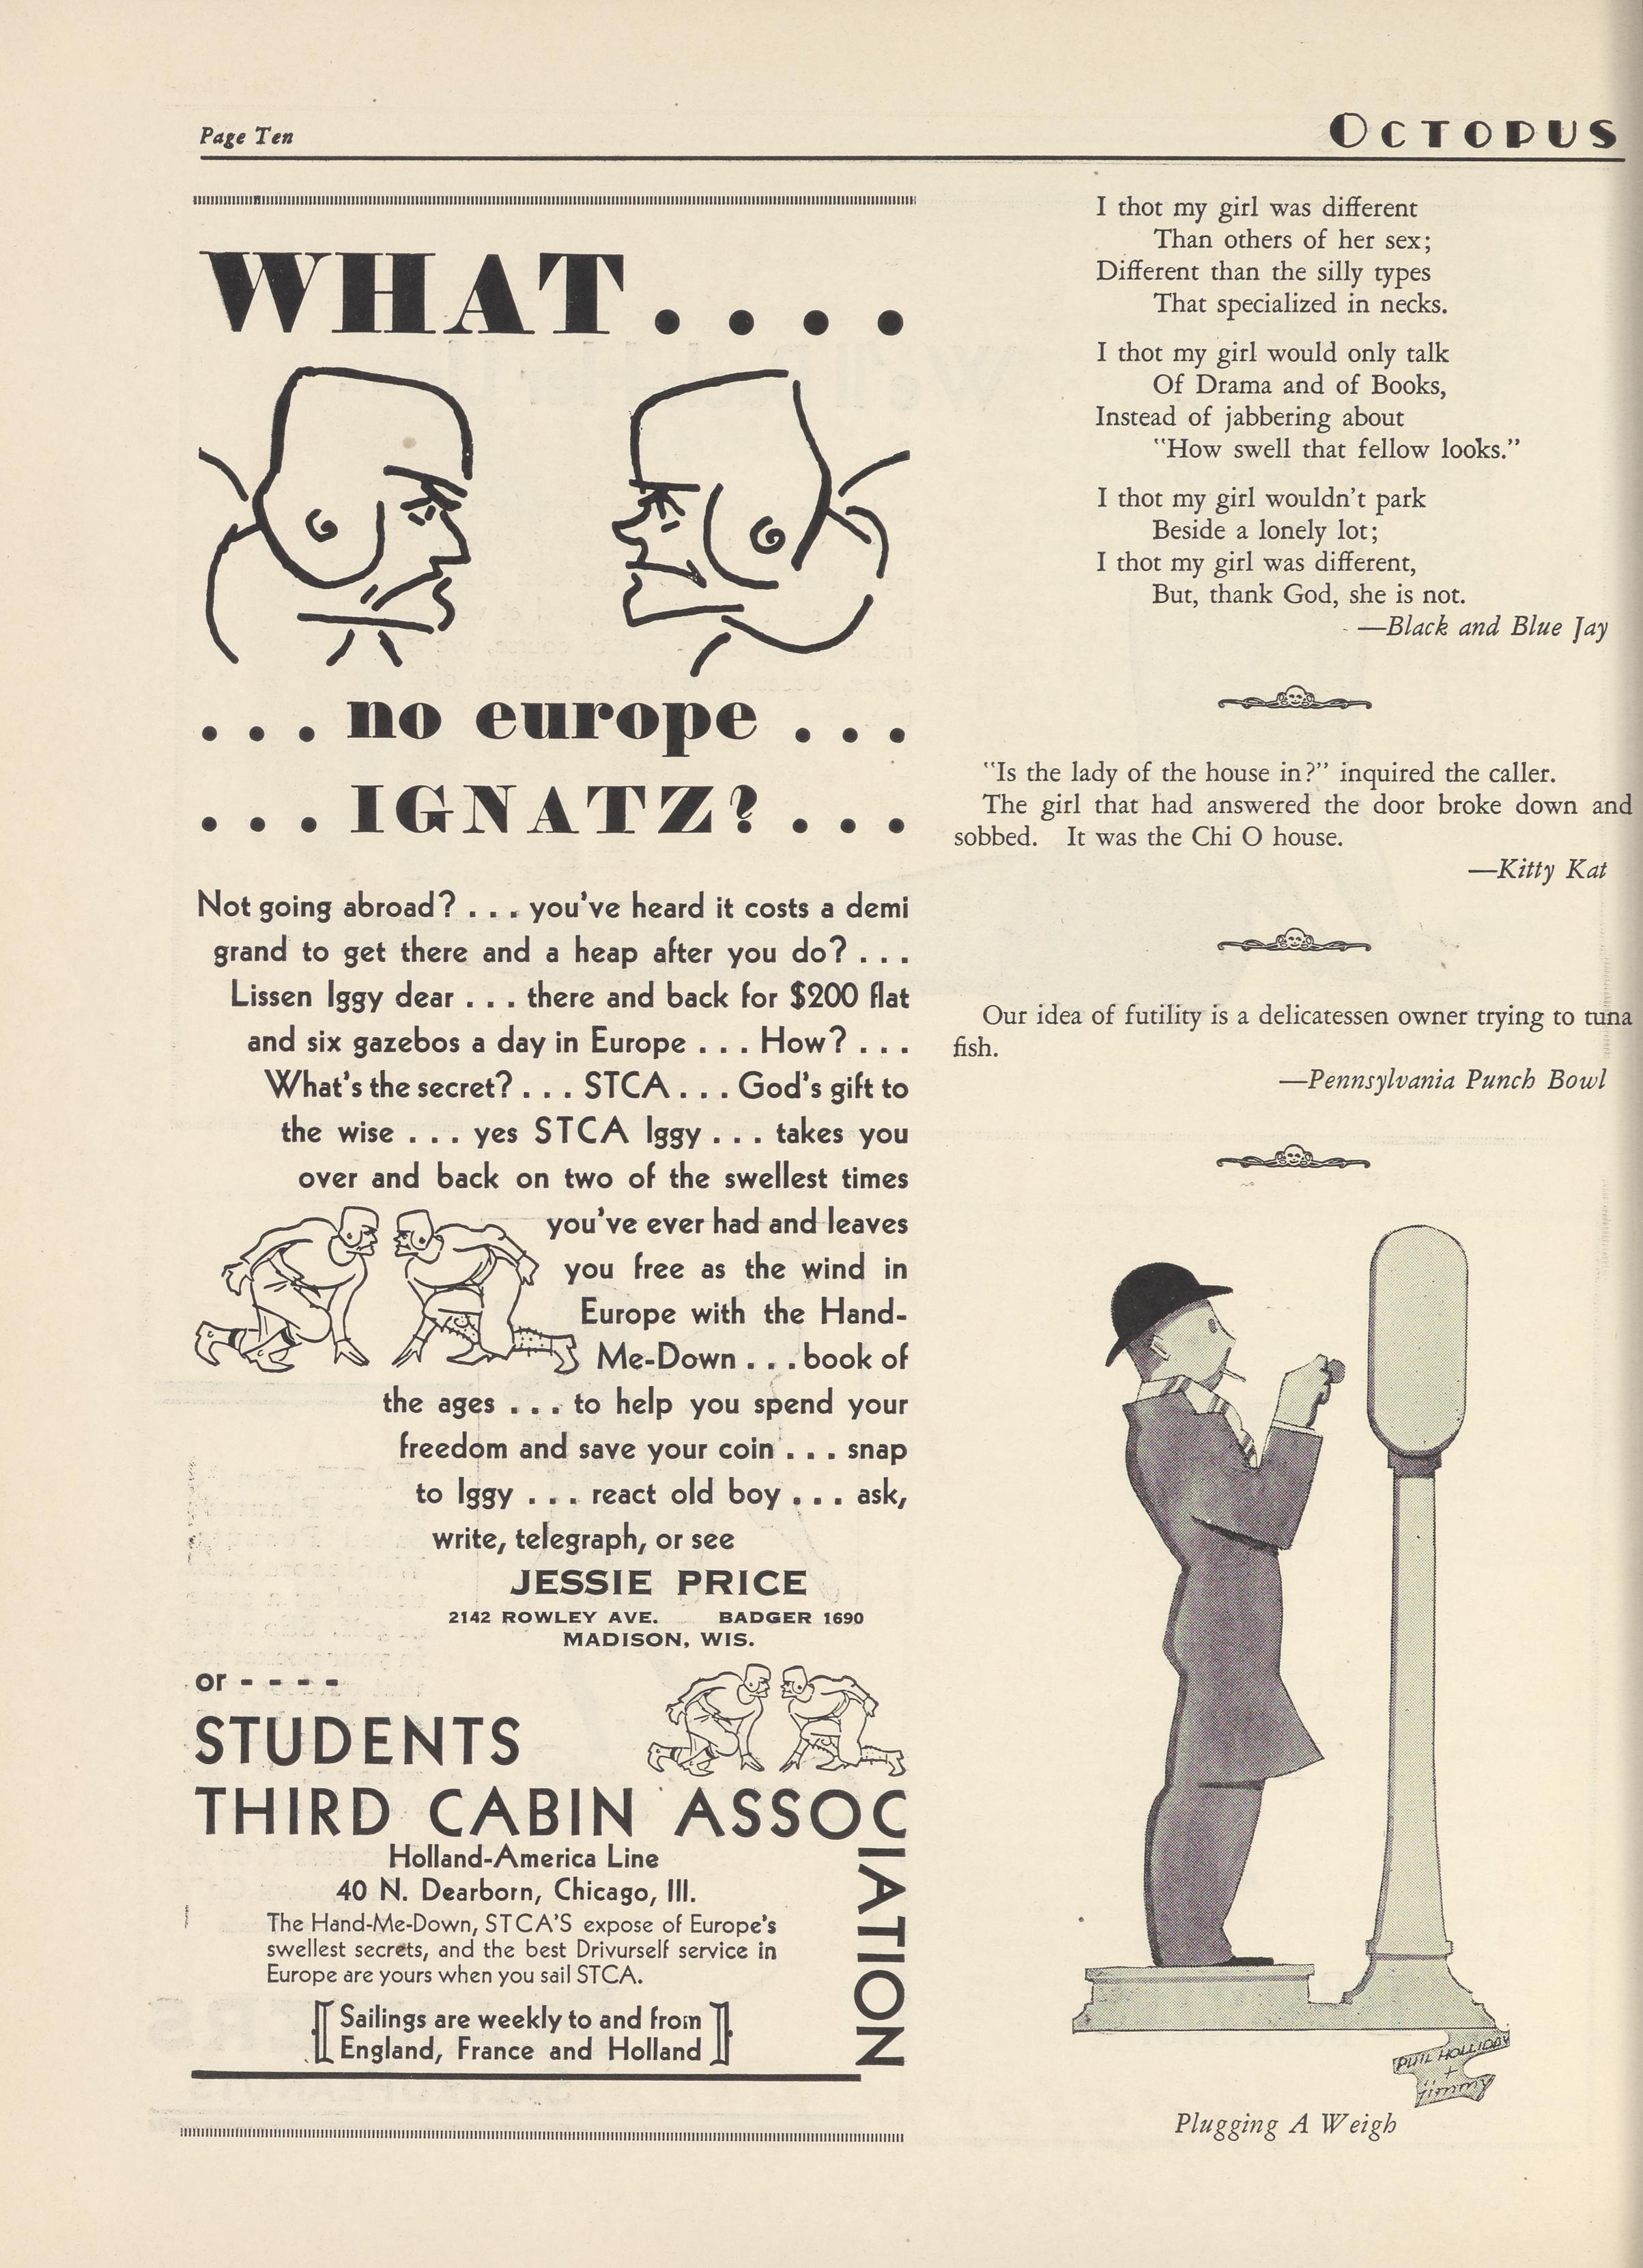 Page Ten
OCTOPUS
WHAT....
...no europe...
...IGNATZ?...
Not going abroad? ... you've heard it costs a demi
grand to get there and a heap after you do? ...
Lissen Iggy dear ... there and back for $200 flat
and six gazebos a day in Europe ... How? ...
What's the secret? ... STCA ... God's gift to
the wise ... yes STCA Iggy ... takes you
over and back on two of the swellest times
you've ever had and leaves
you free as the wind in
Europe with the Hand-
Me-Down ... book of
the ages ... to help you spend your
freedom and save your coin ... snap
to Iggy ... react old boy ... ask,
write, telegraph, or see
JESSIE PRICE
2142 ROWLEY AVE. BADGER 1690
MADISON, WIS.
or - - - -
STUDENTS
THIRD CABIN ASSOCIATION
Holland-America Line
40 N. Dearborn, Chicago, Ill.
The Hand-Me-Down, STCA'S expose of Europe's
swellest secrets, and the best Drivurself service in
Europe are yours when you sail STCA.
Sailings are weekly to and from
England, France and Holland
I thot my girl was different
Than others of her sex;
Different than the silly types
That specialized in necks.
I thot my girl would only talk
Of Drama and of Books,
Instead of jabbering about
"How swell that fellow looks."
I thot my girl wouldn't park
Beside a lonely lot;
I thot my girl was different,
But, thank God, she is not.
—Black and Blue Jay
"Is the lady of the house in?" inquired the caller.
The girl that had answered the door broke down and
sobbed. It was the Chi O house.
—Kitty Kat
Our idea of futility is a delicatessen owner trying to tuna
fish.
—Pennsylvania Punch Bowl
PHIL HOLLIDAY
+
Jimmy
Plugging A Weigh